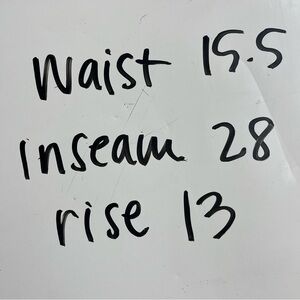 Waist 15.5
inseam 28
rise 13